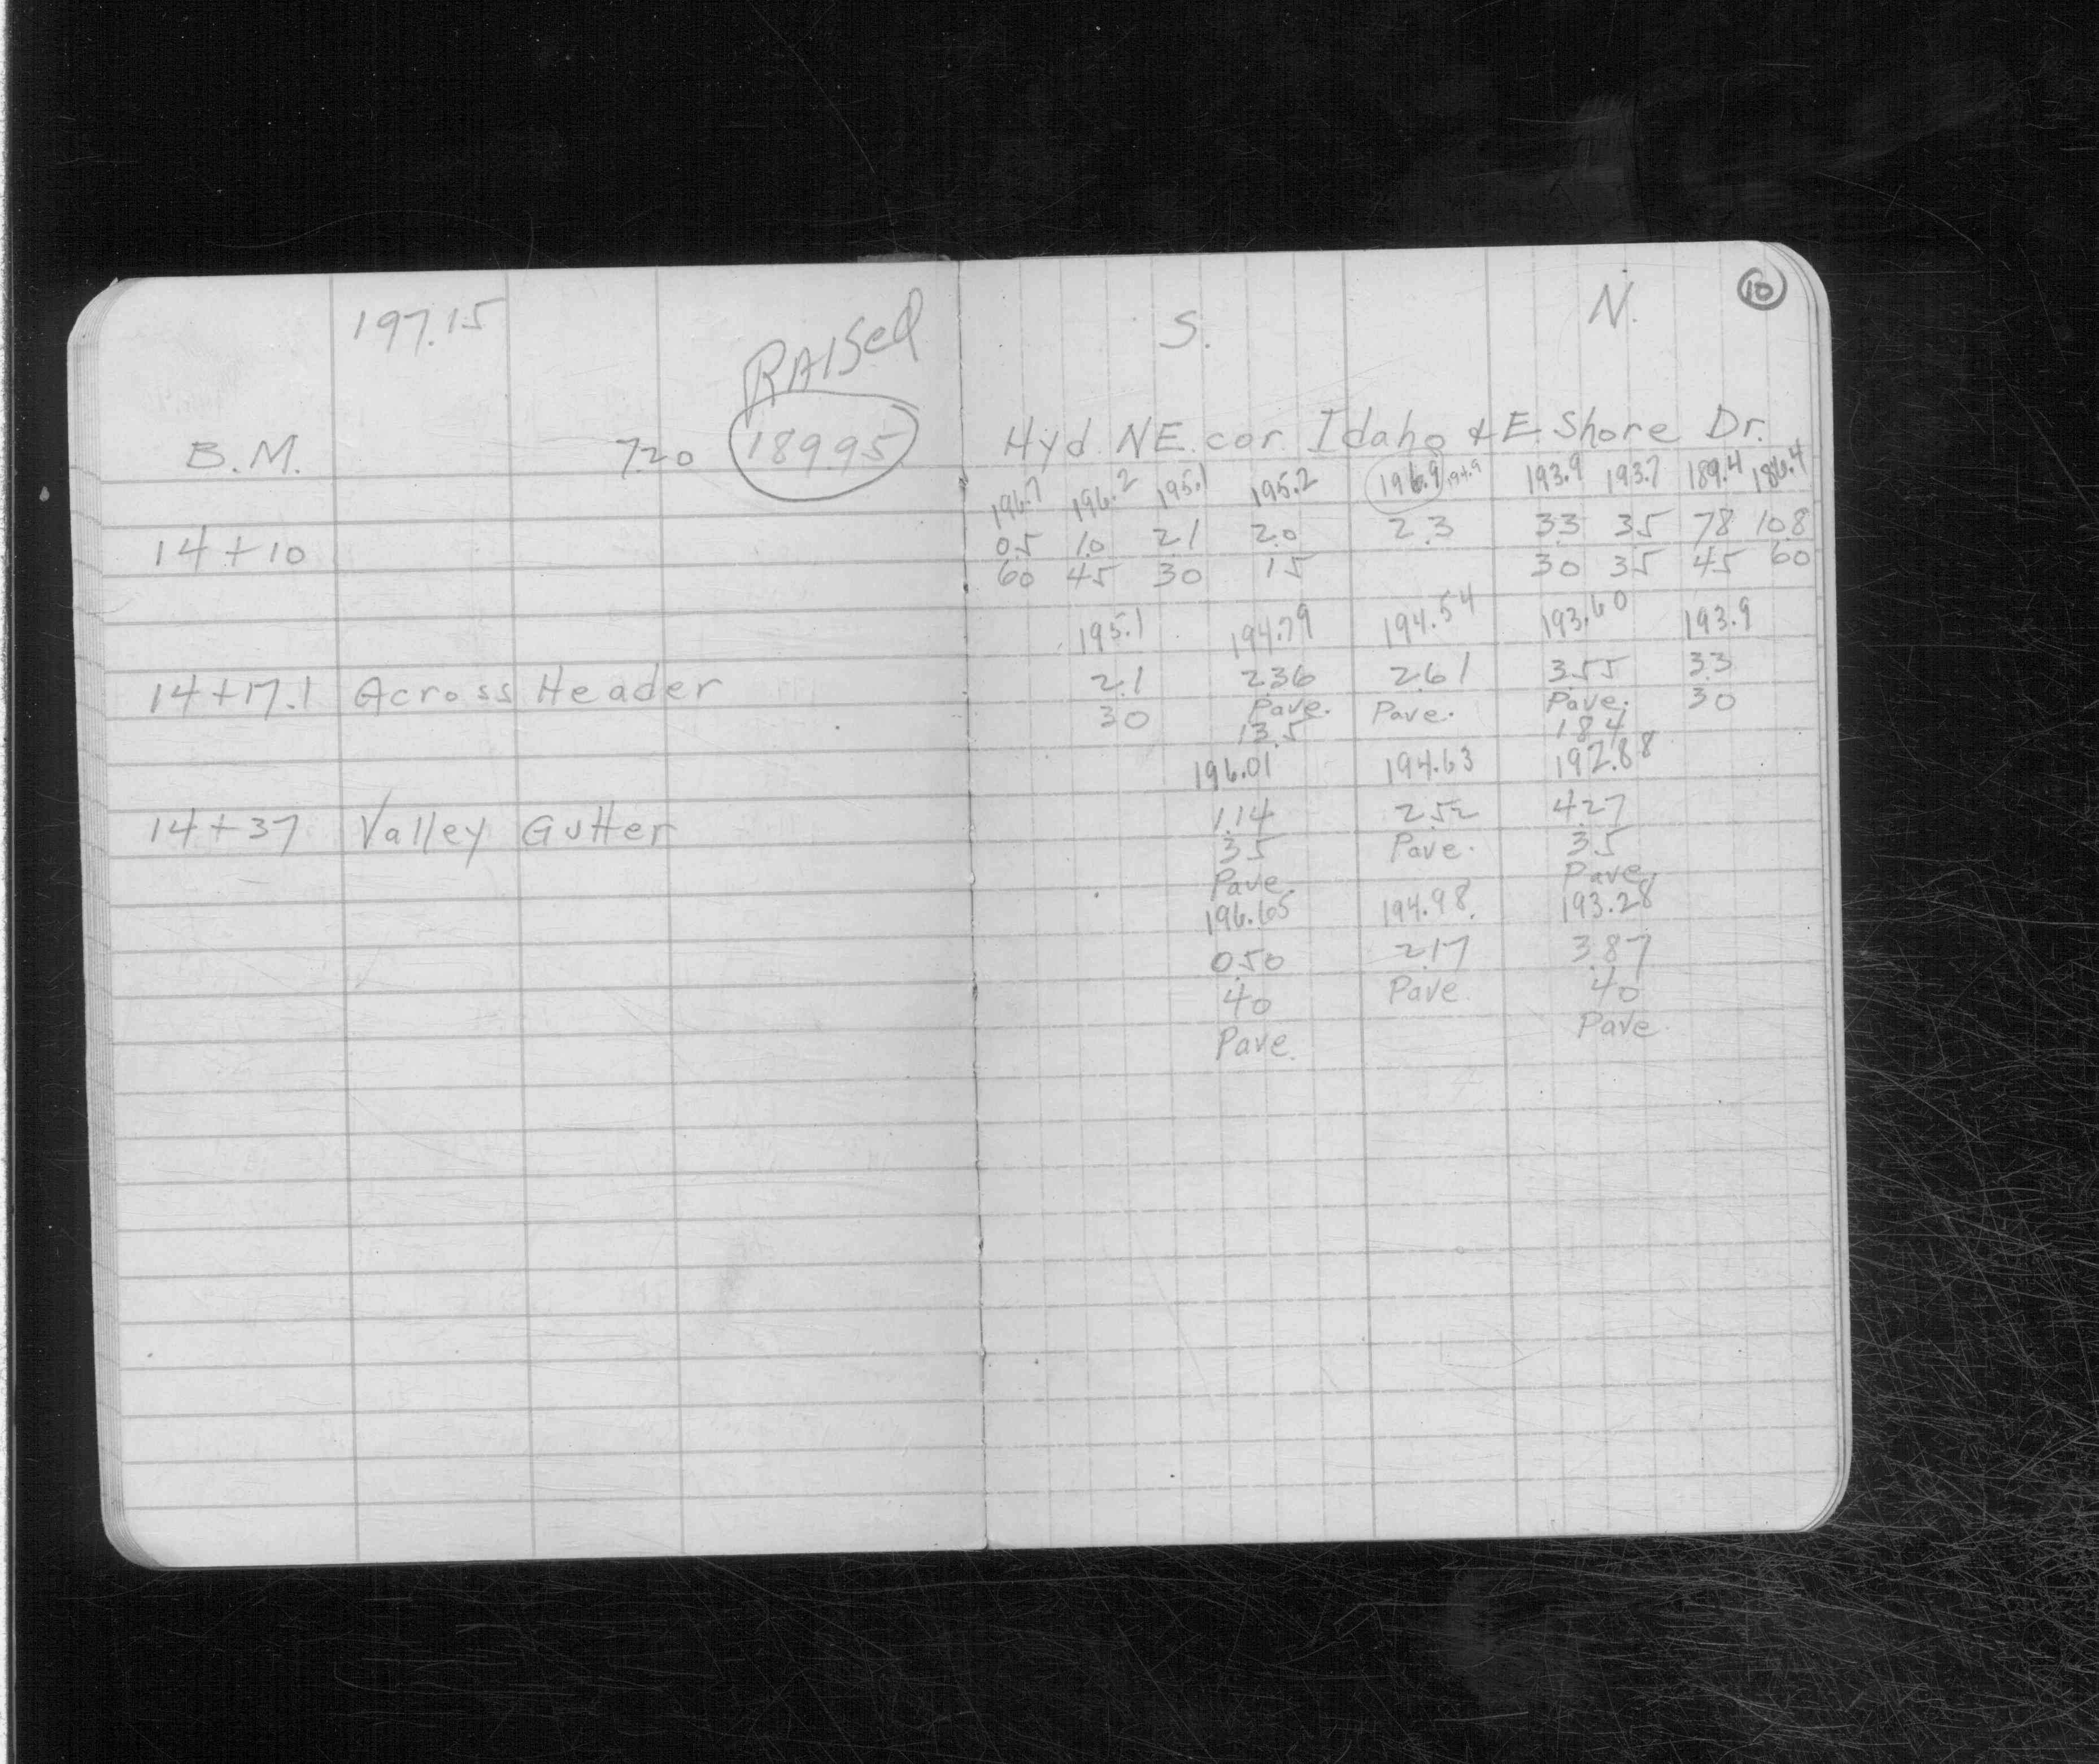 197.15 S. N. 10
RAISed
B.M. 7.20 189.95 Hyd NE. cor. Idaho & E. Shore Dr.
196.7 196.2 195.1 195.2 196.9 194.9 193.9 193.7 189.4 186.4
14+10 0.5 1.0 2.1 2.0 2.3 3.3 3.5 7.8 10.8
60 45 30 15 30 35 45 60
195.1 194.79 194.54 193.60 193.9
14+17.1 Across Header 2.1 2.36 2.61 3.55 3.3
30 Pave. Pave. Pave. 30
13.5 18.4
196.01 194.63 192.88
14+37 Valley Gutter 1.14 2.52 4.27
35 Pave. 35
Pave. Pave.
196.65 194.98 193.28
0.50 2.17 3.87
40 Pave. 40
Pave. Pave.